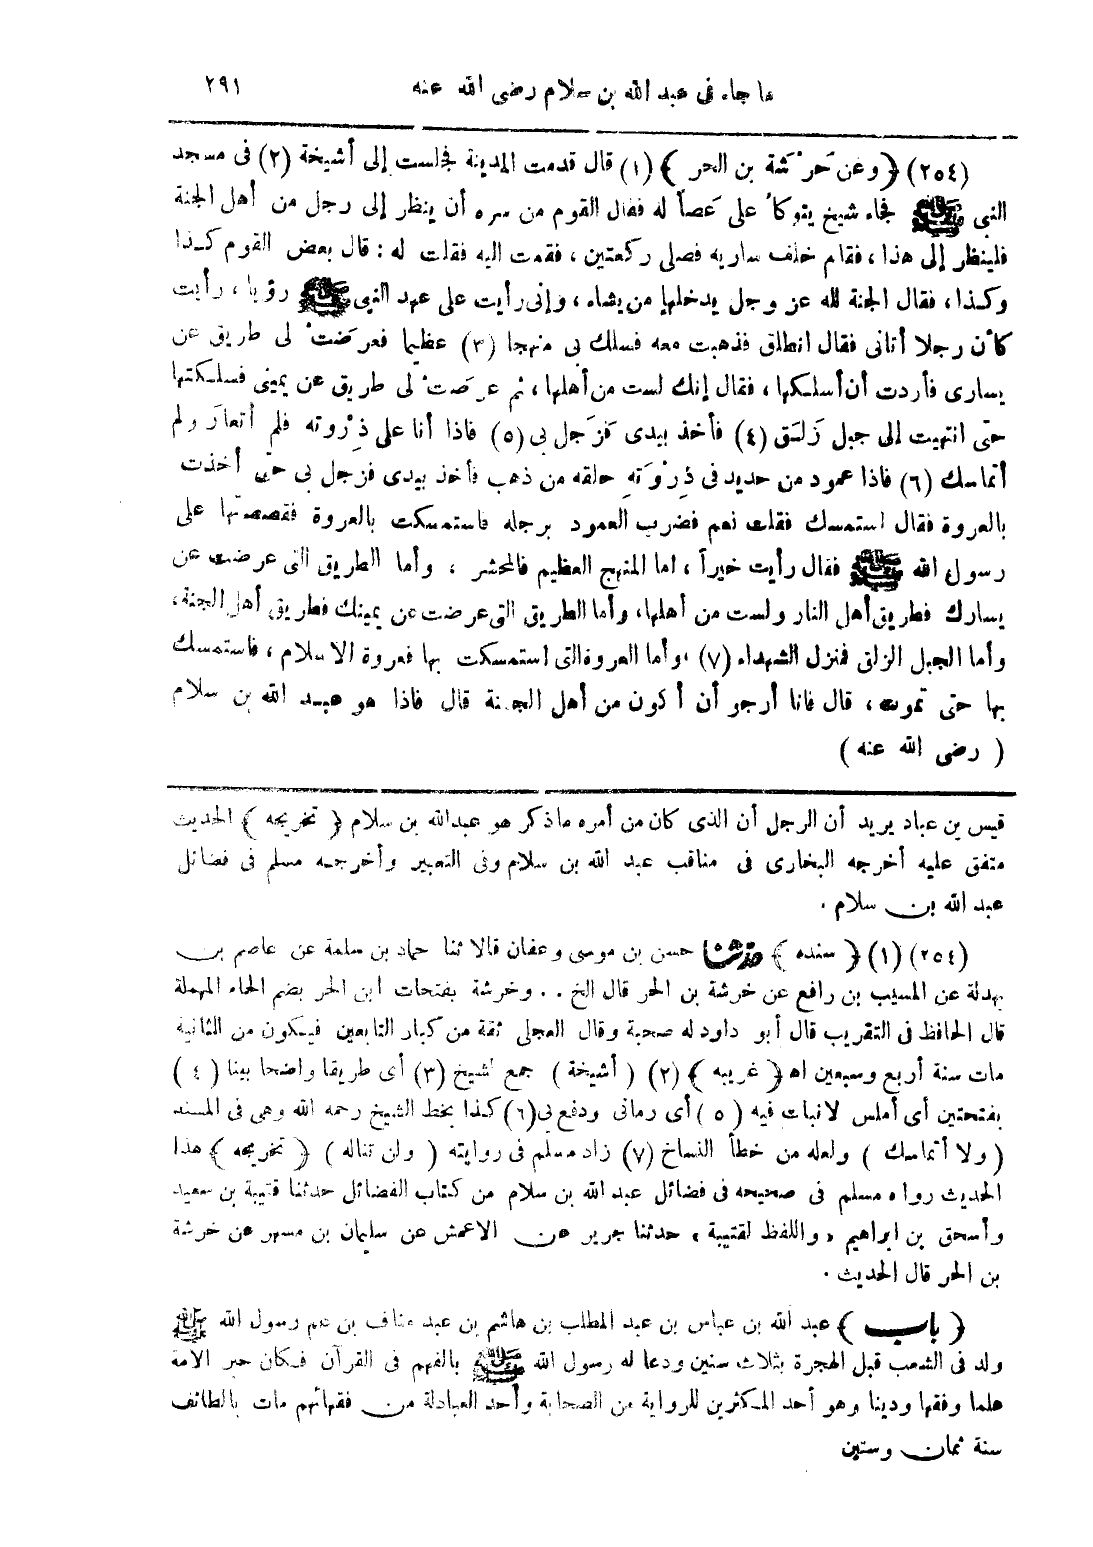 ما جاء فى عبد الله بن سلام رضى الله عنه ٢٩١
(٢٥٤) ﴿ وعن خَرَشَة بن الحر ﴾ (١) قال قدمت المدينة فجلست إلى أشيخة (٢) فى مسجد
النبى ﷺ فجاء شيخ يتوكأ على عَصاً له فقال القوم من سره أن ينظر إلى رجل من أهل الجنة
فلينظر إلى هذا ، فقام خلف سارية فصلى ركعتين ، فقمت اليه فقلت له : قال بعض القوم كذا
وكذا ، فقال الجنة لله عز وجل يدخلها من يشاء ، وإنى رأيت على عهد النبى ﷺ رؤيا ، رأيت
كأن رجلا أتانى فقال انطلق فذهبت معه فسلك بى منهجا (٣) عظيما فعرَضتْ لى طريق عن
يسارى فأردت أن أسلكها ، فقال إنك لست من أهلها ، ثم عرضتْ لى طريق عن يمينى فسلكتها
حتى انتهيت إلى جبل زَلَق (٤) فأخذ بيدى فزَجل بى (٥) فاذا أنا على ذِرْوته فلم أتقارَ ولم
أتماسك (٦) فاذا عمود من حديد فى ذِرْوَتهِ حلقه من ذهب فأخذ بيدى فزجل بى حتى أخذت
بالعروة فقال استمسك فقلت نعم فضرب العمود برجله فاستمسكت بالعروة فقصصتها على
رسول الله ﷺ فقال رأيت خيراً ، اما المنهج العظيم فالمحشر ، وأما الطريق التى عرضت عن
يسارك فطريق أهل النار ولست من أهلها ، وأما الطريق التى عرضت عن يمينك فطريق أهل الجنة،
وأما الجبل الزلق فمنزل الشهداء (٧) ، وأما العروة التى استمسكت بها فعروة الاسلام ، فاستمسك
بها حتى تموت ، قال فانا أرجو أن أكون من أهل الجنة قال فاذا هو عبد الله بن سلام
( رضى الله عنه )
قيس بن عباد يريد أن الرجل أن الذى كان من أمره ماذكر هو عبدالله بن سلام ﴿ تخريجه ﴾ الحديث
متفق عليه أخرجه البخارى فى مناقب عبد الله بن سلام وفى التعبير وأخرجه مسلم فى فضائل
عبد الله بن سلام .
(٢٥٤) (١) ﴿ سنده ﴾ حدثنا حسن بن موسى وعفان قالا ثنا حماد بن سلمة عن عاصم بن
بهدلة عن المسيب بن رافع عن خرشة بن الحر قال الخ . . وخرشة بفتحات ابن الحر بضم الحاء المهملة
قال الحافظ فى التقريب قال أبو داود له صحبة وقال العجلى ثقة من كبار التابعين فيكون من الثانية
مات سنة أربع وسبعين اه ﴿ غريبه ﴾ (٢) ( أشيخة ) جمع لشيخ (٣) أى طريقا واضحا بينا ( ٤ )
بفتحتين أى أملس لانبات فيه ( ٥ ) أى رمانى ودفع بى (٦) كذا بخط الشيخ رحمه الله وهى فى المسند
( ولا أتماسك ) ولعله من خطأ النساخ (٧) زاد مسلم فى روايته ( ولن تناله ) ﴿ تخريجه ﴾ هذا
الحديث رواه مسلم فى صحيحه فى فضائل عبد الله بن سلام من كتاب الفضائل حدثنا قتيبة بن سعيد
وأسحق بن ابراهيم « واللفظ لقتيبة » حدثنا جرير عن الاعمش عن سليمان بن مسهر عن خرشة
بن الحر قال الحديث .
﴿ باب ﴾ عبد الله بن عباس بن عبد المطلب بن هاشم بن عبد مناف بن عم رسول الله ﷺ
ولد فى الشعب قبل الهجرة بثلاث سنين ودعا له رسول الله ﷺ بالفهم فى القرآن فكان حبر الامة
علما وفقها ودينا وهو أحد المكثرين للرواية من الصحابة وأحد العبادلة من فقهائهم مات بالطائف
سنة ثمان وستين